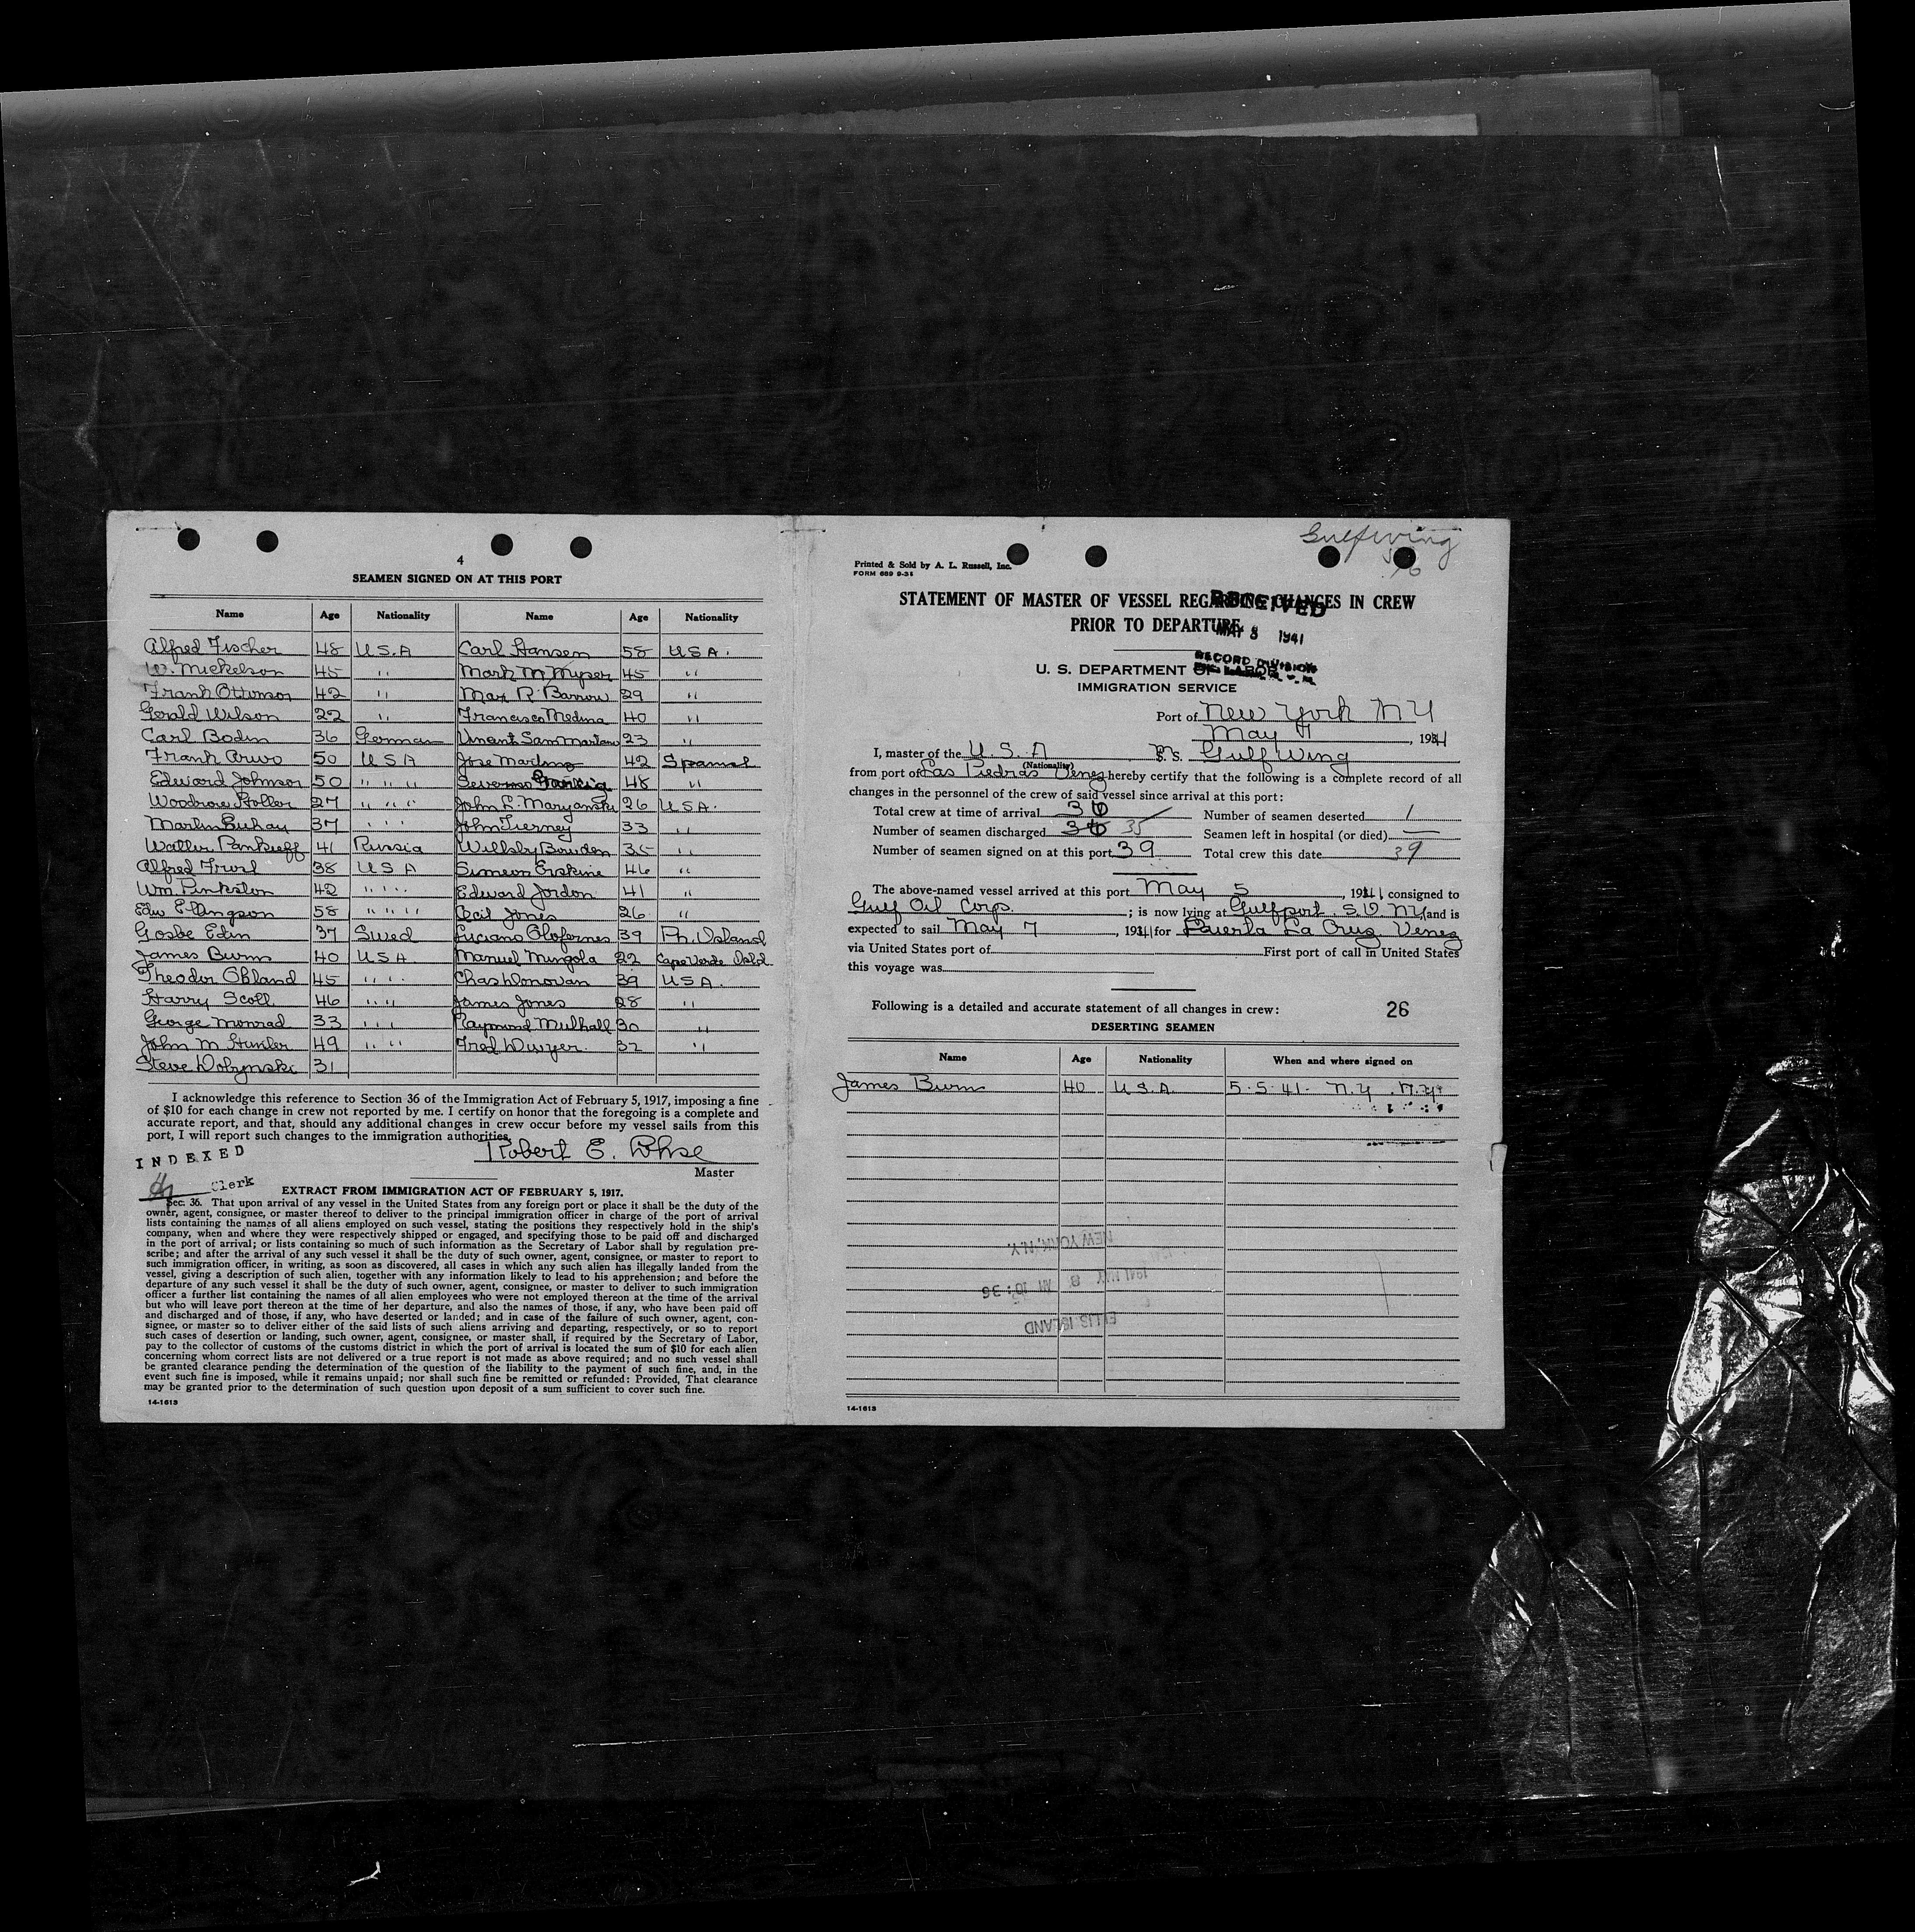 4
SEAMEN SIGNED ON AT THIS PORT
Name Age Nationality Name Age Nationality
Alfred Fischer 48 U.S.A Carl Hansen 58 U S A.
W. Mickelson 45 " Mark M Myser 45 "
Frank Ottinson 42 " Max R Barrow 29 "
Gerald Wilson 22 " Francisco Medina 40 "
Carl Bodin 36 German 23 "
Frank Arvo 50 U S A Jose Martino 42 Spanish
Edward Johnson 50 " " " Severino 48 "
Woodrow Holler 27 " " " John L. Maryanski 26 U S A.
Martin Luhay 37 " " John Tierney 33 "
Walter Pankieff 41 Russia Willsby Bowden 35 "
Alfred Frost 38 U S A Simeon Erskine 46 "
Wm Pinkston 42 " " " Edward Jordon 41 "
Edw Ellingson 58 " " " Cecil Jones 26 "
Gosbe Edin 37 Swed Luciano Olofernes 39 Ph. Island
James Burns 40 U S A Manuel Mungola 22 Cape Verde Isld.
Theodor Obland 45 " " Chas Donovan 39 U S A.
Harry Scott 46 " " James Jones 28 "
George Monrad 33 " " Raymond Mulhall 30 "
John M Hunter 49 " " Fred Dwyer. 32 "
Steve Dobynski 31
I acknowledge this reference to Section 36 of the Immigration Act of February 5, 1917, imposing a fine
of $10 for each change in crew not reported by me. I certify on honor that the foregoing is a complete and
accurate report, and that, should any additional changes in crew occur before my vessel sails from this
port, I will report such changes to the immigration authorities.
Robert E. Lohse
Master
INDEXED
Clerk
EXTRACT FROM IMMIGRATION ACT OF FEBRUARY 5, 1917.
Sec. 36. That upon arrival of any vessel in the United States from any foreign port or place it shall be the duty of the
owner, agent, consignee, or master thereof to deliver to the principal immigration officer in charge of the port of arrival
lists containing the names of all aliens employed on such vessel, stating the positions they respectively hold in the ship's
company, when and where they were respectively shipped or engaged, and specifying those to be paid off and discharged
in the port of arrival; or lists containing so much of such information as the Secretary of Labor shall by regulation pre-
scribe; and after the arrival of any such vessel it shall be the duty of such owner, agent, consignee, or master to report to
such immigration officer, in writing, as soon as discovered, all cases in which any such alien has illegally landed from the
vessel, giving a description of such alien, together with any information likely to lead to his apprehension; and before the
departure of any such vessel it shall be the duty of such owner, agent, consignee, or master to deliver to such immigration
officer a further list containing the names of all alien employees who were not employed thereon at the time of the arrival
but who will leave port thereon at the time of her departure, and also the names of those, if any, who have been paid off
and discharged and of those, if any, who have deserted or landed; and in case of the failure of such owner, agent, con-
signee, or master so to deliver either of the said lists of such aliens arriving and departing, respectively, or so to report
such cases of desertion or landing, such owner, agent, consignee, or master shall, if required by the Secretary of Labor,
pay to the collector of customs of the customs district in which the port of arrival is located the sum of $10 for each alien
concerning whom correct lists are not delivered or a true report is not made as above required; and no such vessel shall
be granted clearance pending the determination of the question of the liability to the payment of such fine, and, in the
event such fine is imposed, while it remains unpaid; nor shall such fine be remitted or refunded: Provided, That clearance
may be granted prior to the determination of such question upon deposit of a sum sufficient to cover such fine.
14-1613
Gulfwing
Printed & Sold by A. L. Russell, Inc.
FORM 689 9-35
STATEMENT OF MASTER OF VESSEL REGARDING CHANGES IN CREW
PRIOR TO DEPARTURE
RECEIVED
MAY 8 1941
RECORD DIVISION
U. S. DEPARTMENT OF LABOR
IMMIGRATION SERVICE
Port of New York N Y
May 7, 1941
I, master of the U. S. A (Nationality) M. S. Gulf Wing
from port of Las Piedras Venez hereby certify that the following is a complete record of all
changes in the personnel of the crew of said vessel since arrival at this port:
Total crew at time of arrival 36 Number of seamen deserted 1
Number of seamen discharged 36 35 Seamen left in hospital (or died) —
Number of seamen signed on at this port 39 Total crew this date 39
The above-named vessel arrived at this port May 5, 1941, consigned to
Gulf Oil Corp.; is now lying at Gulfport. S.I. NY, and is
expected to sail May 7, 1941 for Puerta La Cruz Venez
via United States port of First port of call in United States
this voyage was
Following is a detailed and accurate statement of all changes in crew: 26
DESERTING SEAMEN
Name Age Nationality When and where signed on
James Burns 40 U.S.A. 5.5.41. N.Y. N.Y.
NEW YORK, N.Y.
1941 MAY 8 AM 10:36
ELLIS ISLAND
14-1613